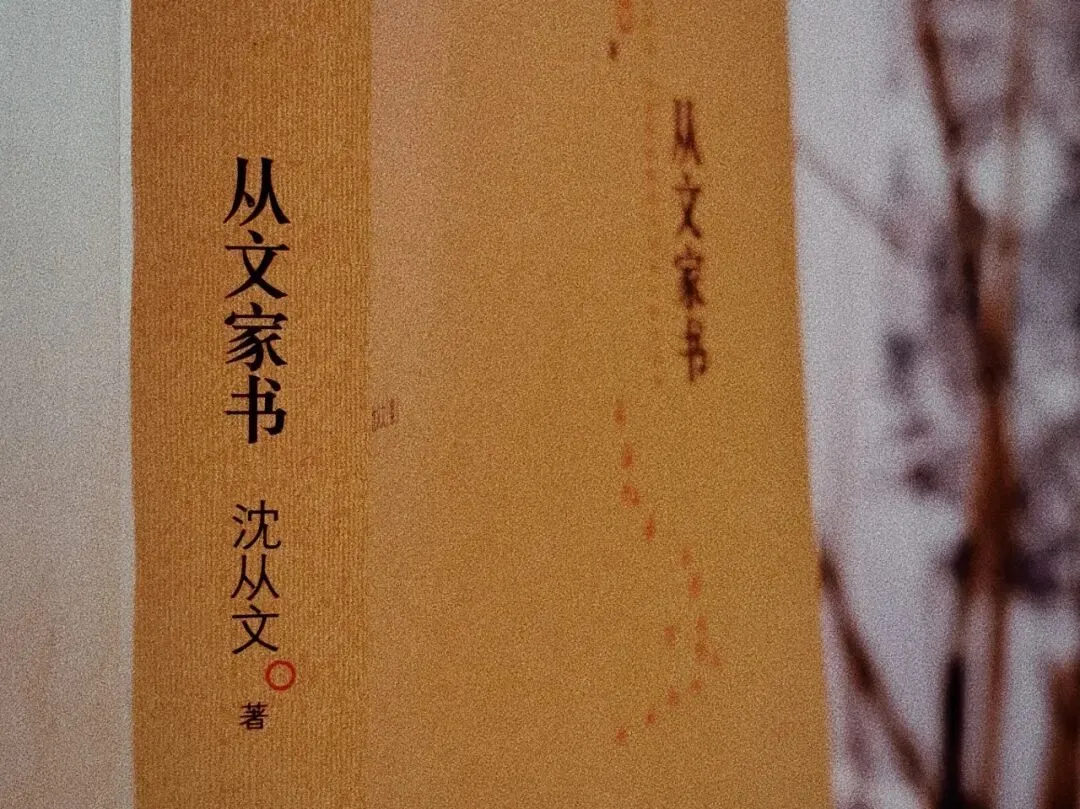 从文家书
沈从文
著
从文家书